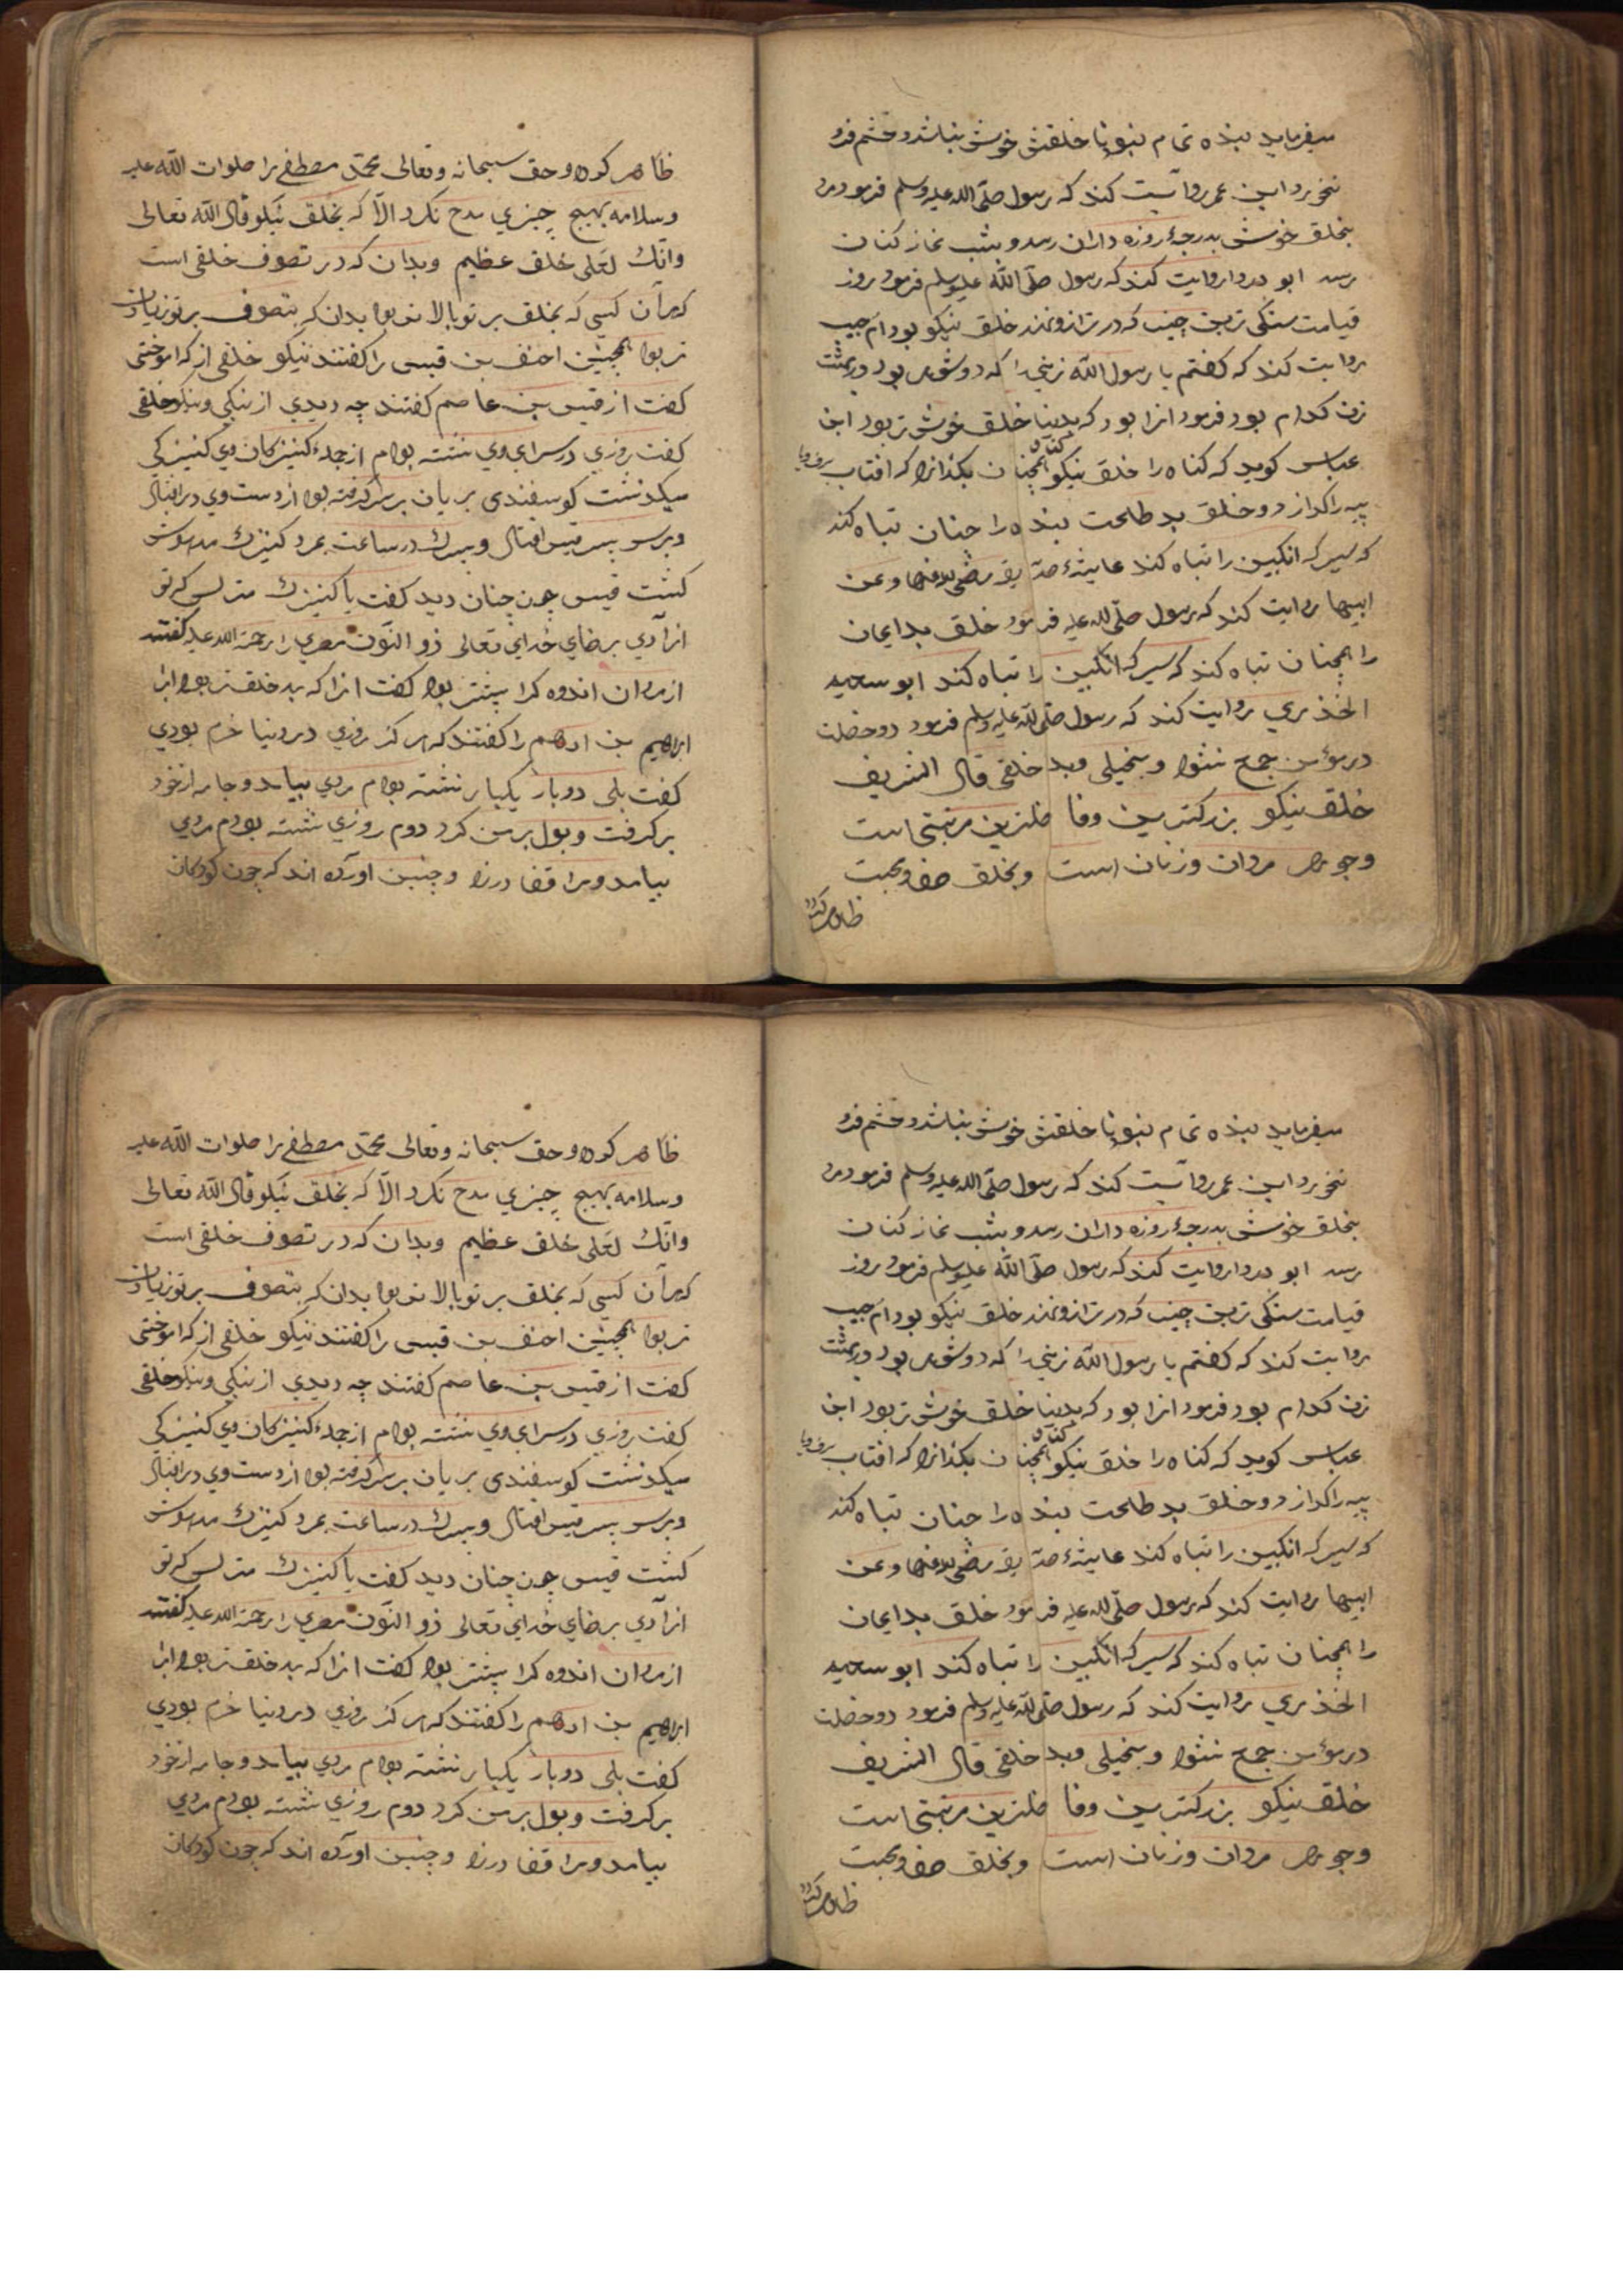 میفرماید بنده تمام نبود تا خلقش خوش نباشد و خشم فرو
نخورد ابن عمر روایت کند که رسول صلّی الله علیه وسلم فرمود مرد
بخلق خوش بدرجهٔ روزه داران رسد و بشب نماز کنان
رسد ابو دردا روایت کند که رسول صلّی اللّه علیه وسلم فرمود روز
قیامت سنکی ترین چیزی که در ترازو نهند خلق نیکو بود ام حبیبه
روایت کند که کفتم یا رسول اللّه زنی را که دو شوهر بود در بهشت
زن کدام بود فرمود انرا بود که بدنیا خلق خوش تر بود ابن
عباس کوید که کناه را خلق نیکو همچنان بکدازد که افتاب برف و یا
پیه را کدازد و خلق بد طاعت بنده را چنان تباه کند
که سرکه انکبین را تباه کند عایشهٔ صدیقه رضی الله عنها وعن
ابیها روایت کند که رسول صلّی الله علیه فرمود خلق بد ایمان
را همچنان تباه کند که سرکه انکبین را تباه کند ابو سعید
الخدری روایت کند که رسول صلّی اللّه علیه وسلم فرمود دو خصلت
در مؤمن جمع نشود و بخیلی و بد خلقی قال الشریف
خلق نیکو بزرکترین وفاضلترین مرتبتی است
وجوهر مردان و زنان است و بخلق صفو محبت
ظاهر کردد
ظاهر کردد و حق سبحانه وتعالی محمّد مصطفی را صلوات اللّه علیه
وسلامه بهیچ چیزی مدح نکرد الّا که بخلق نیکو قال اللّه تعالی
وانّك لعلی خلق عظیم وبدان که در تصوف خلقی است
هر آن کسی که بخلق بر تو بالا تر بود بدان که بتصوف بر تو زیادت
تر بود همچنین احنف بن قیس را کفتند نیکو خلقی از که اموختی
کفت از قیس بن عاصم کفتند چه دیدی از نیکی و نیکو خلقی
کفت روزی در سرای وی نشسته بودم از جملهٔ کنیزکان وی کنیزکی
میکذشت کوسفندی بریان بر سر کرفته بود از دست وی در افتاد
وبر سر پسر قیس افتاد و پسرك در ساعت بمرد کنیزك مدهوش
کشت قیس چون چنان دید کفت یا کنیزك مترس که تو
ازادی برضای خدای تعالی ذو النّون مصری را رحمة الله علیه کفتند
از مردان اندوه کرا بیشتر بود کفت انرا که بد خلق تر بود
ابراهیم بن ادهم را کفتند که هرکز روزی در دنیا خرم بودی
کفت بلی دوبار یکبار نشسته بودم مردی بیامد و جامه از خود
برکرفت و بول بر من کرد دوم روزی نشسته بودم مردی
بیامد و مرا قفا در زد و چنین اورده اند که چون کودکان
میفرماید بنده تمام نبود تا خلقش خوش نباشد و خشم فرو
نخورد ابن عمر روایت کند که رسول صلّی الله علیه وسلم فرمود مرد
بخلق خوش بدرجهٔ روزه داران رسد و بشب نماز کنان
رسد ابو دردا روایت کند که رسول صلّی اللّه علیه وسلم فرمود روز
قیامت سنکی ترین چیزی که در ترازو نهند خلق نیکو بود ام حبیبه
روایت کند که کفتم یا رسول اللّه زنی را که دو شوهر بود در بهشت
زن کدام بود فرمود انرا بود که بدنیا خلق خوش تر بود ابن
عباس کوید که کناه را خلق نیکو همچنان بکدازد که افتاب برف و یا
پیه را کدازد و خلق بد طاعت بنده را چنان تباه کند
که سرکه انکبین را تباه کند عایشهٔ صدیقه رضی الله عنها وعن
ابیها روایت کند که رسول صلّی الله علیه فرمود خلق بد ایمان
را همچنان تباه کند که سرکه انکبین را تباه کند ابو سعید
الخدری روایت کند که رسول صلّی اللّه علیه وسلم فرمود دو خصلت
در مؤمن جمع نشود و بخیلی و بد خلقی قال الشریف
خلق نیکو بزرکترین وفاضلترین مرتبتی است
وجوهر مردان و زنان است و بخلق صفو محبت
ظاهر کردد
ظاهر کردد و حق سبحانه وتعالی محمّد مصطفی را صلوات اللّه علیه
وسلامه بهیچ چیزی مدح نکرد الّا که بخلق نیکو قال اللّه تعالی
وانّك لعلی خلق عظیم وبدان که در تصوف خلقی است
هر آن کسی که بخلق بر تو بالا تر بود بدان که بتصوف بر تو زیادت
تر بود همچنین احنف بن قیس را کفتند نیکو خلقی از که اموختی
کفت از قیس بن عاصم کفتند چه دیدی از نیکی و نیکو خلقی
کفت روزی در سرای وی نشسته بودم از جملهٔ کنیزکان وی کنیزکی
میکذشت کوسفندی بریان بر سر کرفته بود از دست وی در افتاد
وبر سر پسر قیس افتاد و پسرك در ساعت بمرد کنیزك مدهوش
کشت قیس چون چنان دید کفت یا کنیزك مترس که تو
ازادی برضای خدای تعالی ذو النّون مصری را رحمة الله علیه کفتند
از مردان اندوه کرا بیشتر بود کفت انرا که بد خلق تر بود
ابراهیم بن ادهم را کفتند که هرکز روزی در دنیا خرم بودی
کفت بلی دوبار یکبار نشسته بودم مردی بیامد و جامه از خود
برکرفت و بول بر من کرد دوم روزی نشسته بودم مردی
بیامد و مرا قفا در زد و چنین اورده اند که چون کودکان